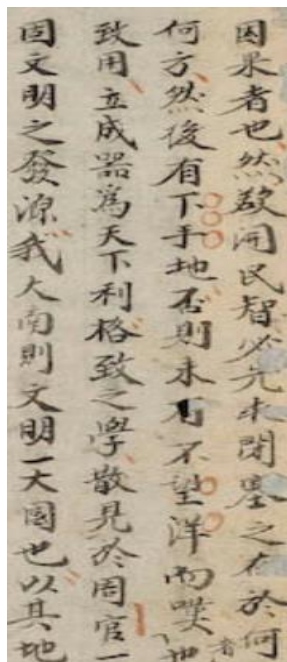 因果者也然欲開民智必先求閉塞之在於何
何方然後有下手地否則未有不望洋而嘆者也
致用立成器爲天下利格致之學散見於周官一
固文明之發源我大南則文明一大國也以其地